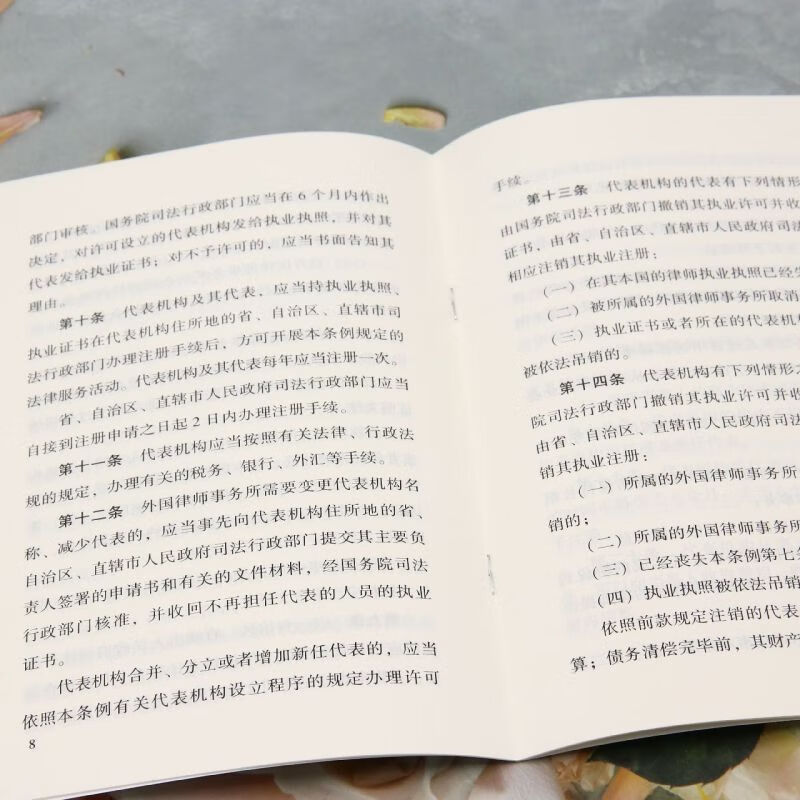 部门审核。国务院司法行政部门应当在6个月内作出
决定，对许可设立的代表机构发给执业执照，并对其
代表发给执业证书；对不予许可的，应当书面告知其
理由。
第十条 代表机构及其代表，应当持执业执照、
执业证书在代表机构住所地的省、自治区、直辖市司
法行政部门办理注册手续后，方可开展本条例规定的
法律服务活动。代表机构及其代表每年应当注册一次。
省、自治区、直辖市人民政府司法行政部门应当
自接到注册申请之日起2日内办理注册手续。
第十一条 代表机构应当按照有关法律、行政法
规的规定，办理有关的税务、银行、外汇等手续。
第十二条 外国律师事务所需要变更代表机构名
称、减少代表的，应当事先向代表机构住所地的省、
自治区、直辖市人民政府司法行政部门提交其主要负
责人签署的申请书和有关的文件材料，经国务院司法
行政部门核准，并收回不再担任代表的人员的执业
证书。
代表机构合并、分立或者增加新任代表的，应当
依照本条例有关代表机构设立程序的规定办理许可
8
手续。
第十三条 代表机构的代表有下列情形
由国务院司法行政部门撤销其执业许可并收
证书，由省、自治区、直辖市人民政府司法
相应注销其执业注册：
（一）在其本国的律师执业执照已经
（二）被所属的外国律师事务所取消
（三）执业证书或者所在的代表机构
被依法吊销的。
第十四条 代表机构有下列情形
院司法行政部门撤销其执业许可并收
由省、自治区、直辖市人民政府司法
销其执业注册：
（一）所属的外国律师事务所
销的；
（二）所属的外国律师事务所
（三）已经丧失本条例第七条
（四）执业执照被依法吊销
依照前款规定注销的代表
算；债务清偿完毕前，其财产